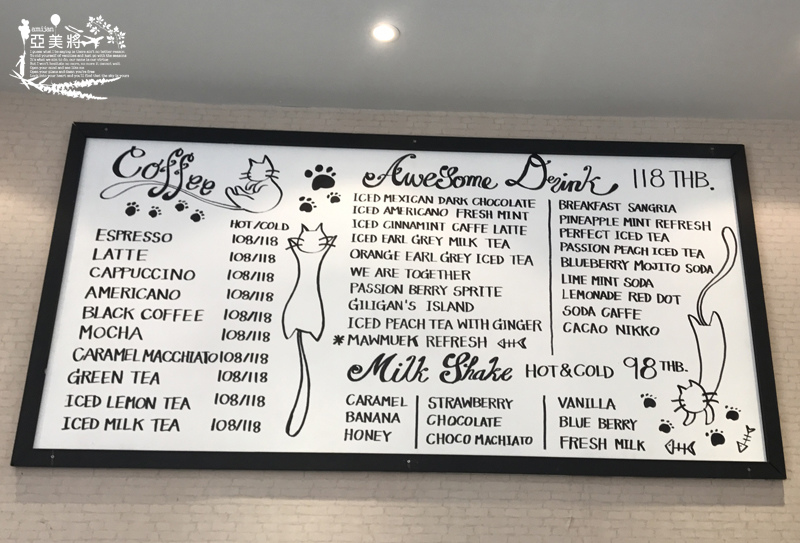 amijan
亞美將
Coffee
HOT/COLD
ESPRESSO 108/118
LATTE 108/118
CAPPUCCINO 108/118
AMERICANO 108/118
BLACK COFFEE 108/118
MOCHA 108/118
CARAMEL MACCHIATO 108/118
GREEN TEA 108/118
ICED LEMON TEA 108/118
ICED MILK TEA 108/118
AweSome Drink 118 THB.
ICED MEXICAN DARK CHOCOLATE
ICED AMERICANO FRESH MINT
ICED CINNAMINT CAFFE LATTE
ICED EARL GREY MILK TEA
ORANGE EARL GREY ICED TEA
WE ARE TOGETHER
PASSION BERRY SPRITE
GILIGAN'S ISLAND
ICED PEACH TEA WITH GINGER
*MAWMUEK REFRESH
BREAKFAST SANGRIA
PINEAPPLE MINT REFRESH
PERFECT ICED TEA
PASSION PEACH ICED TEA
BLUEBERRY MOJITO SODA
LIME MINT SODA
LEMONADE RED DOT
SODA CAFFE
CACAO NIKKO
Milk Shake HOT & COLD 98 THB.
CARAMEL
BANANA
HONEY
STRAWBERRY
CHOCOLATE
CHOCO MACHIATO
VANILLA
BLUE BERRY
FRESH MILK